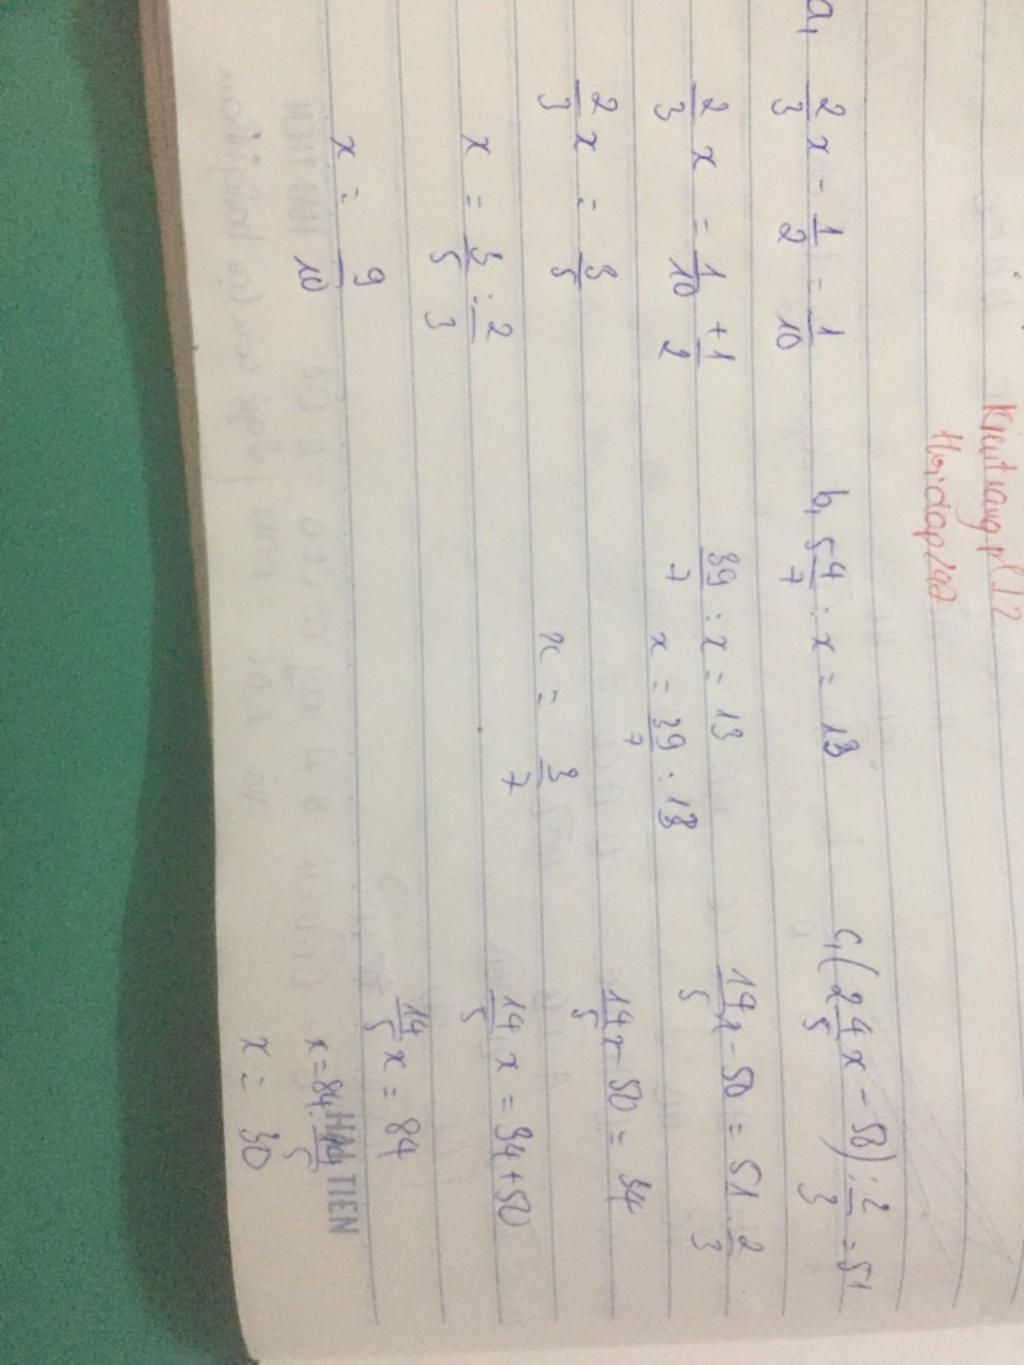 Kieutrangpl12
Hoidap247
a, 2/3 x - 1/2 = 1/10
2/3 x = 1/10 + 1/2
2/3 x = 3/5
x = 3/5 : 2/3
x = 9/10
b, 5 4/7 : x = 13
39/7 : x = 13
x = 39/7 : 13
x = 3/7
c, (2 4/5 x - 50) : 2/3 = 51
14/5 x - 50 = 51 . 2/3
14/5 x - 50 = 34
14/5 x = 34 + 50
14/5 x = 84
x = 84 : 14/5
x = 30
HẢI TIẾN